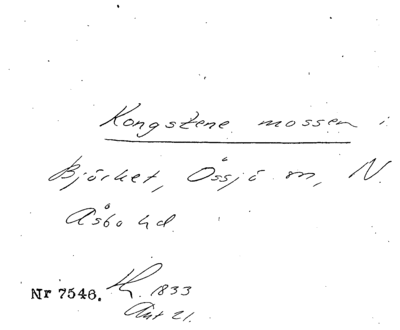 Kongstene mossen i
Björket, Össjö m, N.
Åsbo hd.
Nr 7546. 1833
Ant 21.